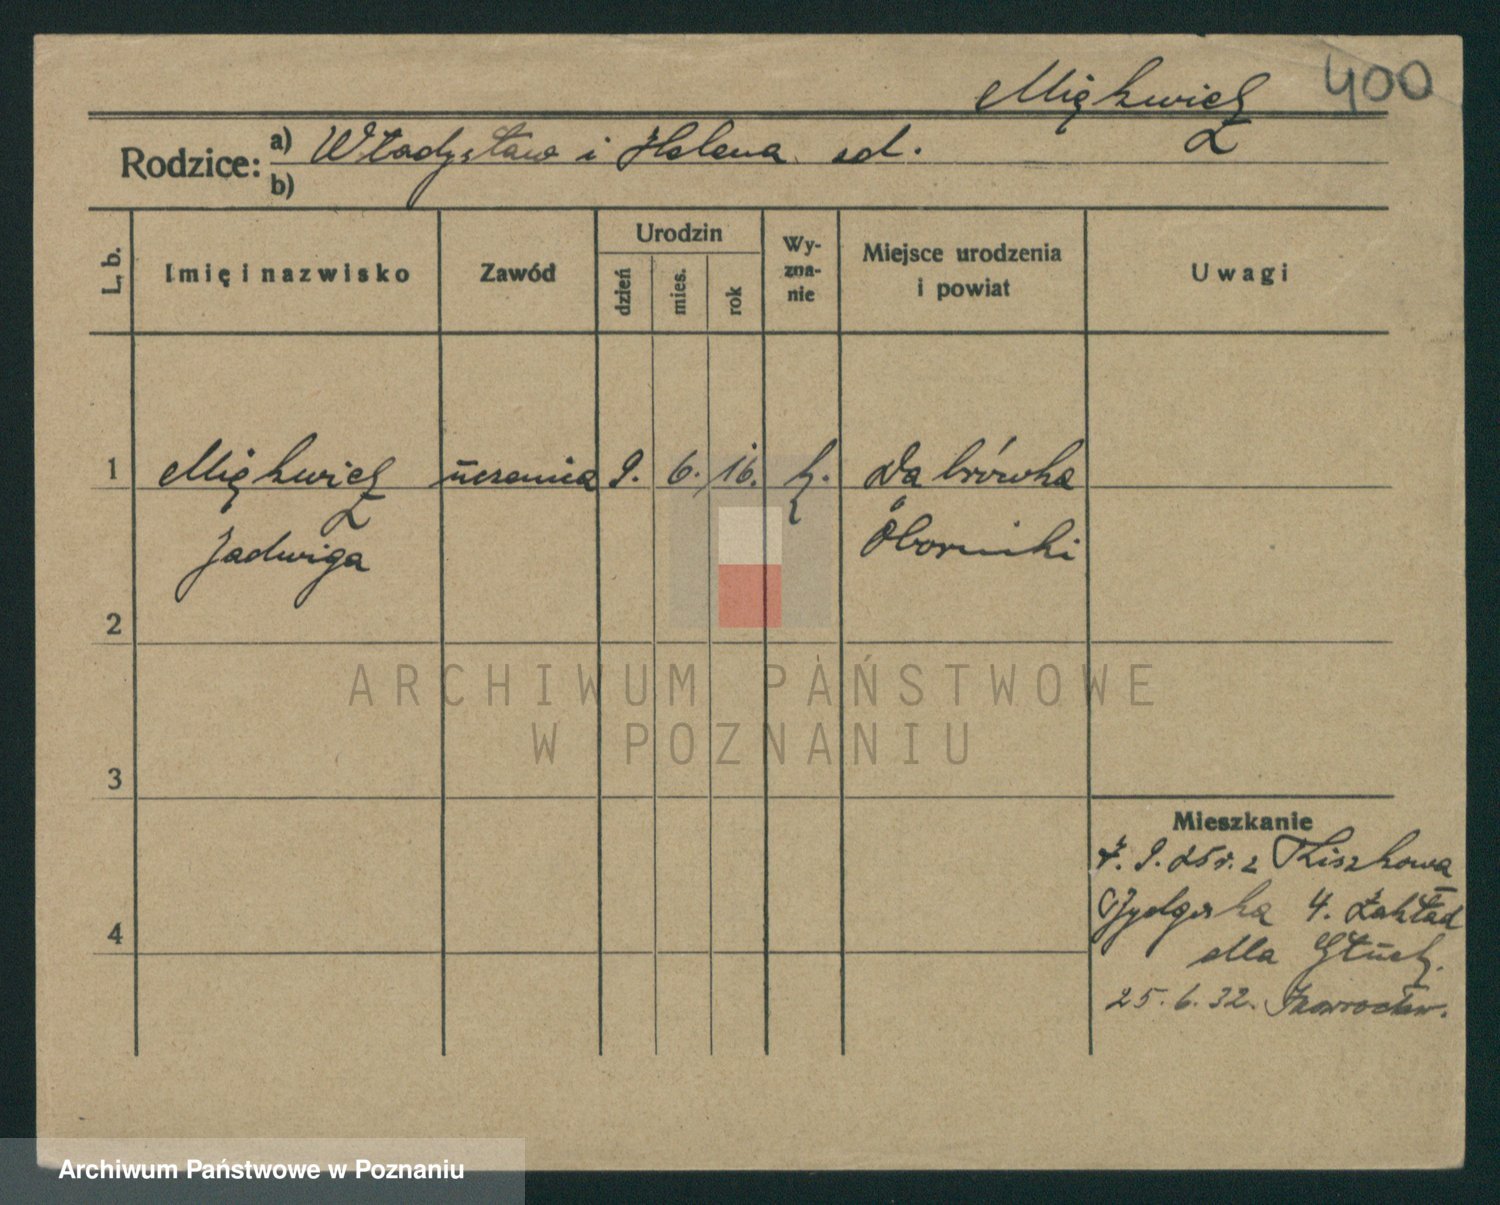 400
Miękwicz
Rodzice: a) Władysław i Helena ed.
b)
L. b.
Imię i nazwisko
Zawód
Urodzin
dzień
mies.
rok
Wy-
zna-
nie
Miejsce urodzenia
i powiat
Uwagi
1 Miękwicz uczenica 9. 6. 16. k. Dąbrówka
Jadwiga Oborniki
2
3
4
Mieszkanie
7. 9. 25 r. z Kiszkowa
Bydgska 4. Zakład
dla Głuch.
25. 6. 32. Inowrocław.
ARCHIWUM PAŃSTWOWE
W POZNANIU
Archiwum Państwowe w Poznaniu